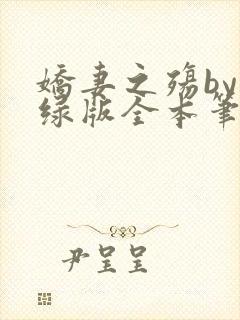 嬌妻之殤by
绿版全本筆
尹呈呈